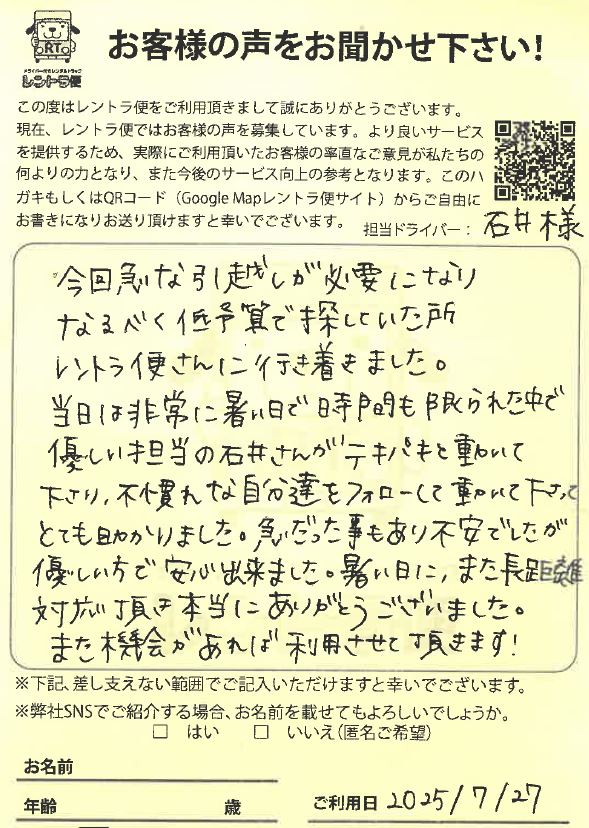 お客様の声をお聞かせ下さい！
RT
ドライバー付きレンタルトラック
レントラ便
この度はレントラ便をご利用頂きまして誠にありがとうございます。
現在、レントラ便ではお客様の声を募集しています。より良いサービス
を提供するため、実際にご利用頂いたお客様の率直なご意見が私たちの
何よりの力となり、また今後のサービス向上の参考となります。このハ
ガキもしくはQRコード（Google Mapレントラ便サイト）からご自由に
お書きになりお送り頂けますと幸いでございます。
担当ドライバー： 石井様
今回急な引越しが必要になり
なるべく低予算で探していた所
レントラ便さんに行き着きました。
当日は非常に暑い日で時間も限られた中で
優しい担当の石井さんがテキパキと動いて
下さり、不慣れな自分達をフォローして動いて下さって
とても助かりました。急だった事もあり不安でしたが
優しい方で安心出来ました。暑い日に、また長距離
対応頂き本当にありがとうございました。
また機会があれば利用させて頂きます！
※下記、差し支えない範囲でご記入いただけますと幸いでございます。
※弊社SNSでご紹介する場合、お名前を載せてもよろしいでしょうか。
□ はい □ いいえ（匿名ご希望）
お名前
年齢 歳 ご利用日 2025/7/27